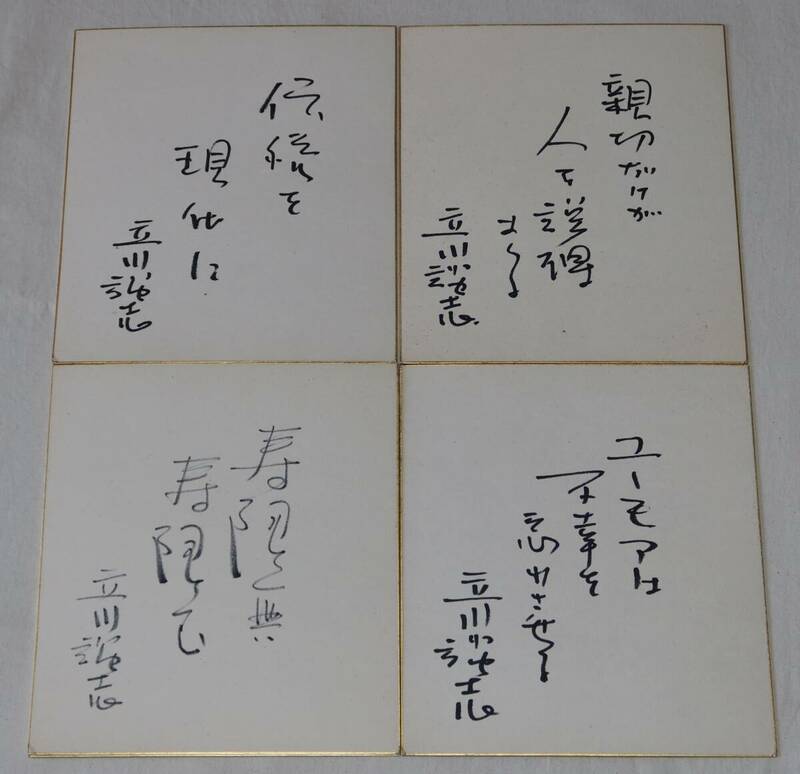 伝統を
現代に
立川談志
親切だけが
人を説得
する
立川談志
寿限無
寿限む
立川談志
ユーモアは
不幸を
忘れさせる
立川談志